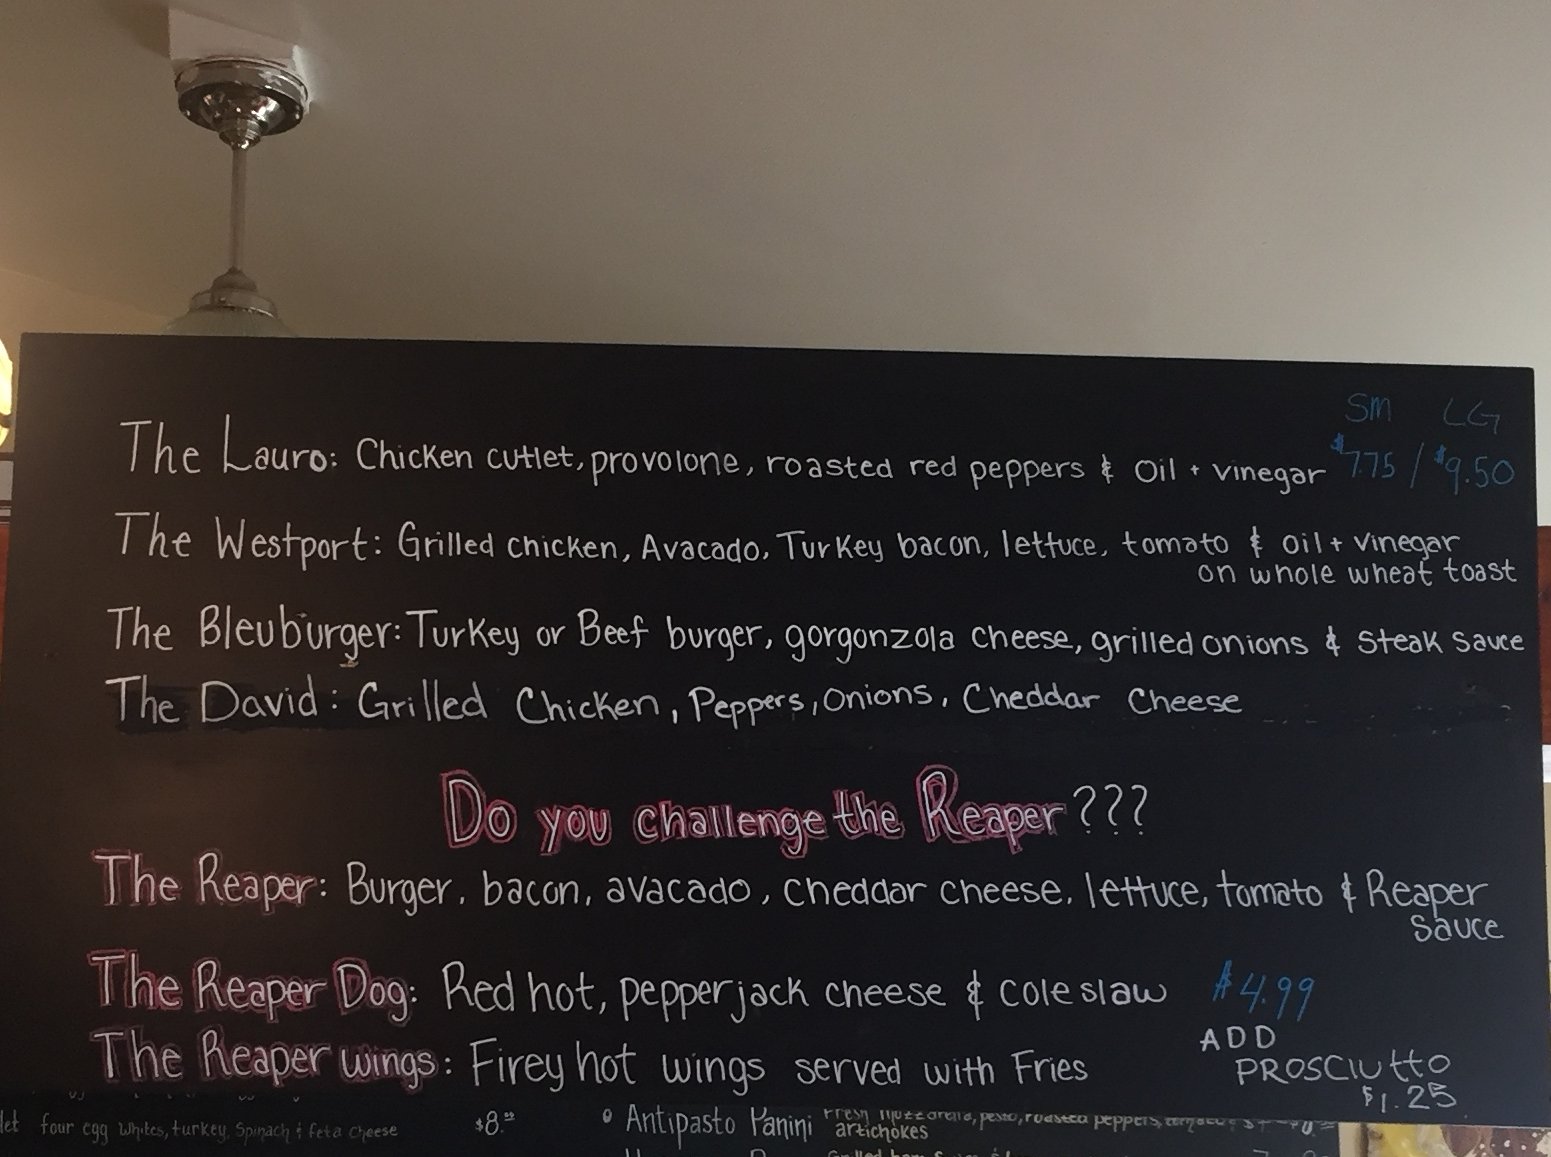 SM LG
The Lauro: Chicken cutlet, provolone, roasted red peppers & oil + vinegar $7.75 / $9.50
The Westport: Grilled chicken, Avacado, Turkey bacon, lettuce, tomato & oil + vinegar
on whole wheat toast
The Bleuburger: Turkey or Beef burger, gorgonzola cheese, grilled onions & steak sauce
The David: Grilled Chicken, Peppers, Onions, Cheddar Cheese
Do you challenge the Reaper???
The Reaper: Burger, bacon, avacado, cheddar cheese, lettuce, tomato & Reaper
Sauce
The Reaper Dog: Red hot, pepperjack cheese & coleslaw $4.99
ADD
The Reaper wings: Firey hot wings served with Fries PROSCIUTTO
$1.25
four egg whites, turkey, spinach & feta cheese $8.
• Antipasto Panini Fresh mozzarella, pesto, roasted peppers,
artichokes